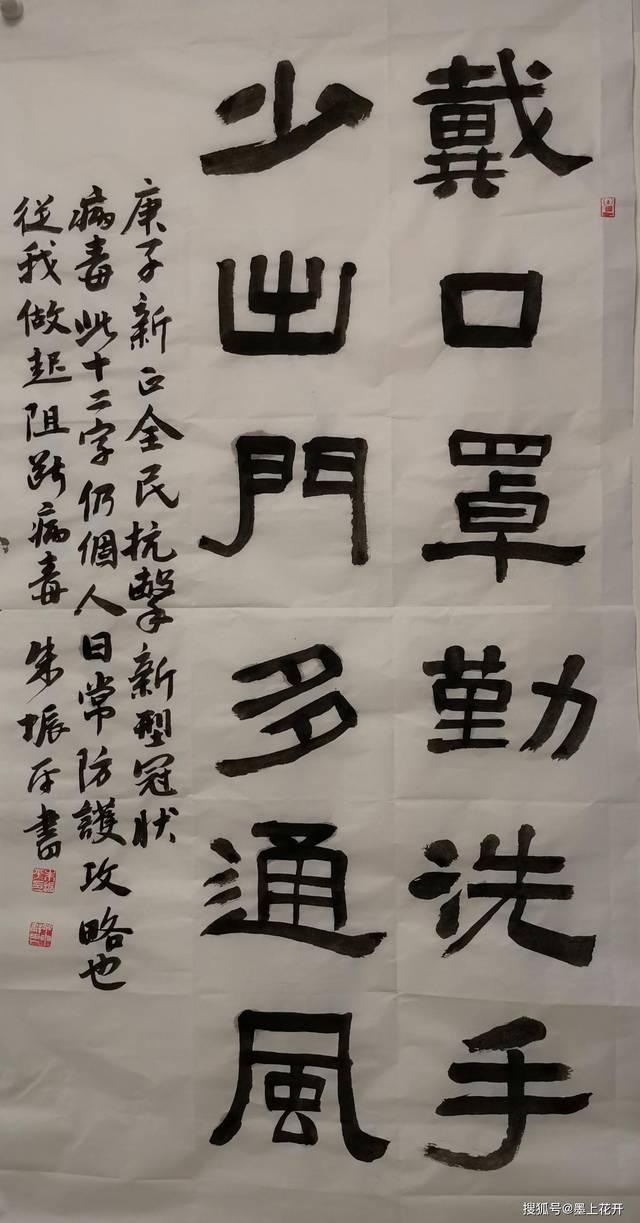 戴口罩勤洗手
少出門多通風
庚子新正全民抗擊新型冠狀
病毒此十二字仍個人日常防護攻略也
從我做起阻斷病毒 朱振平書
搜狐号@墨上花开